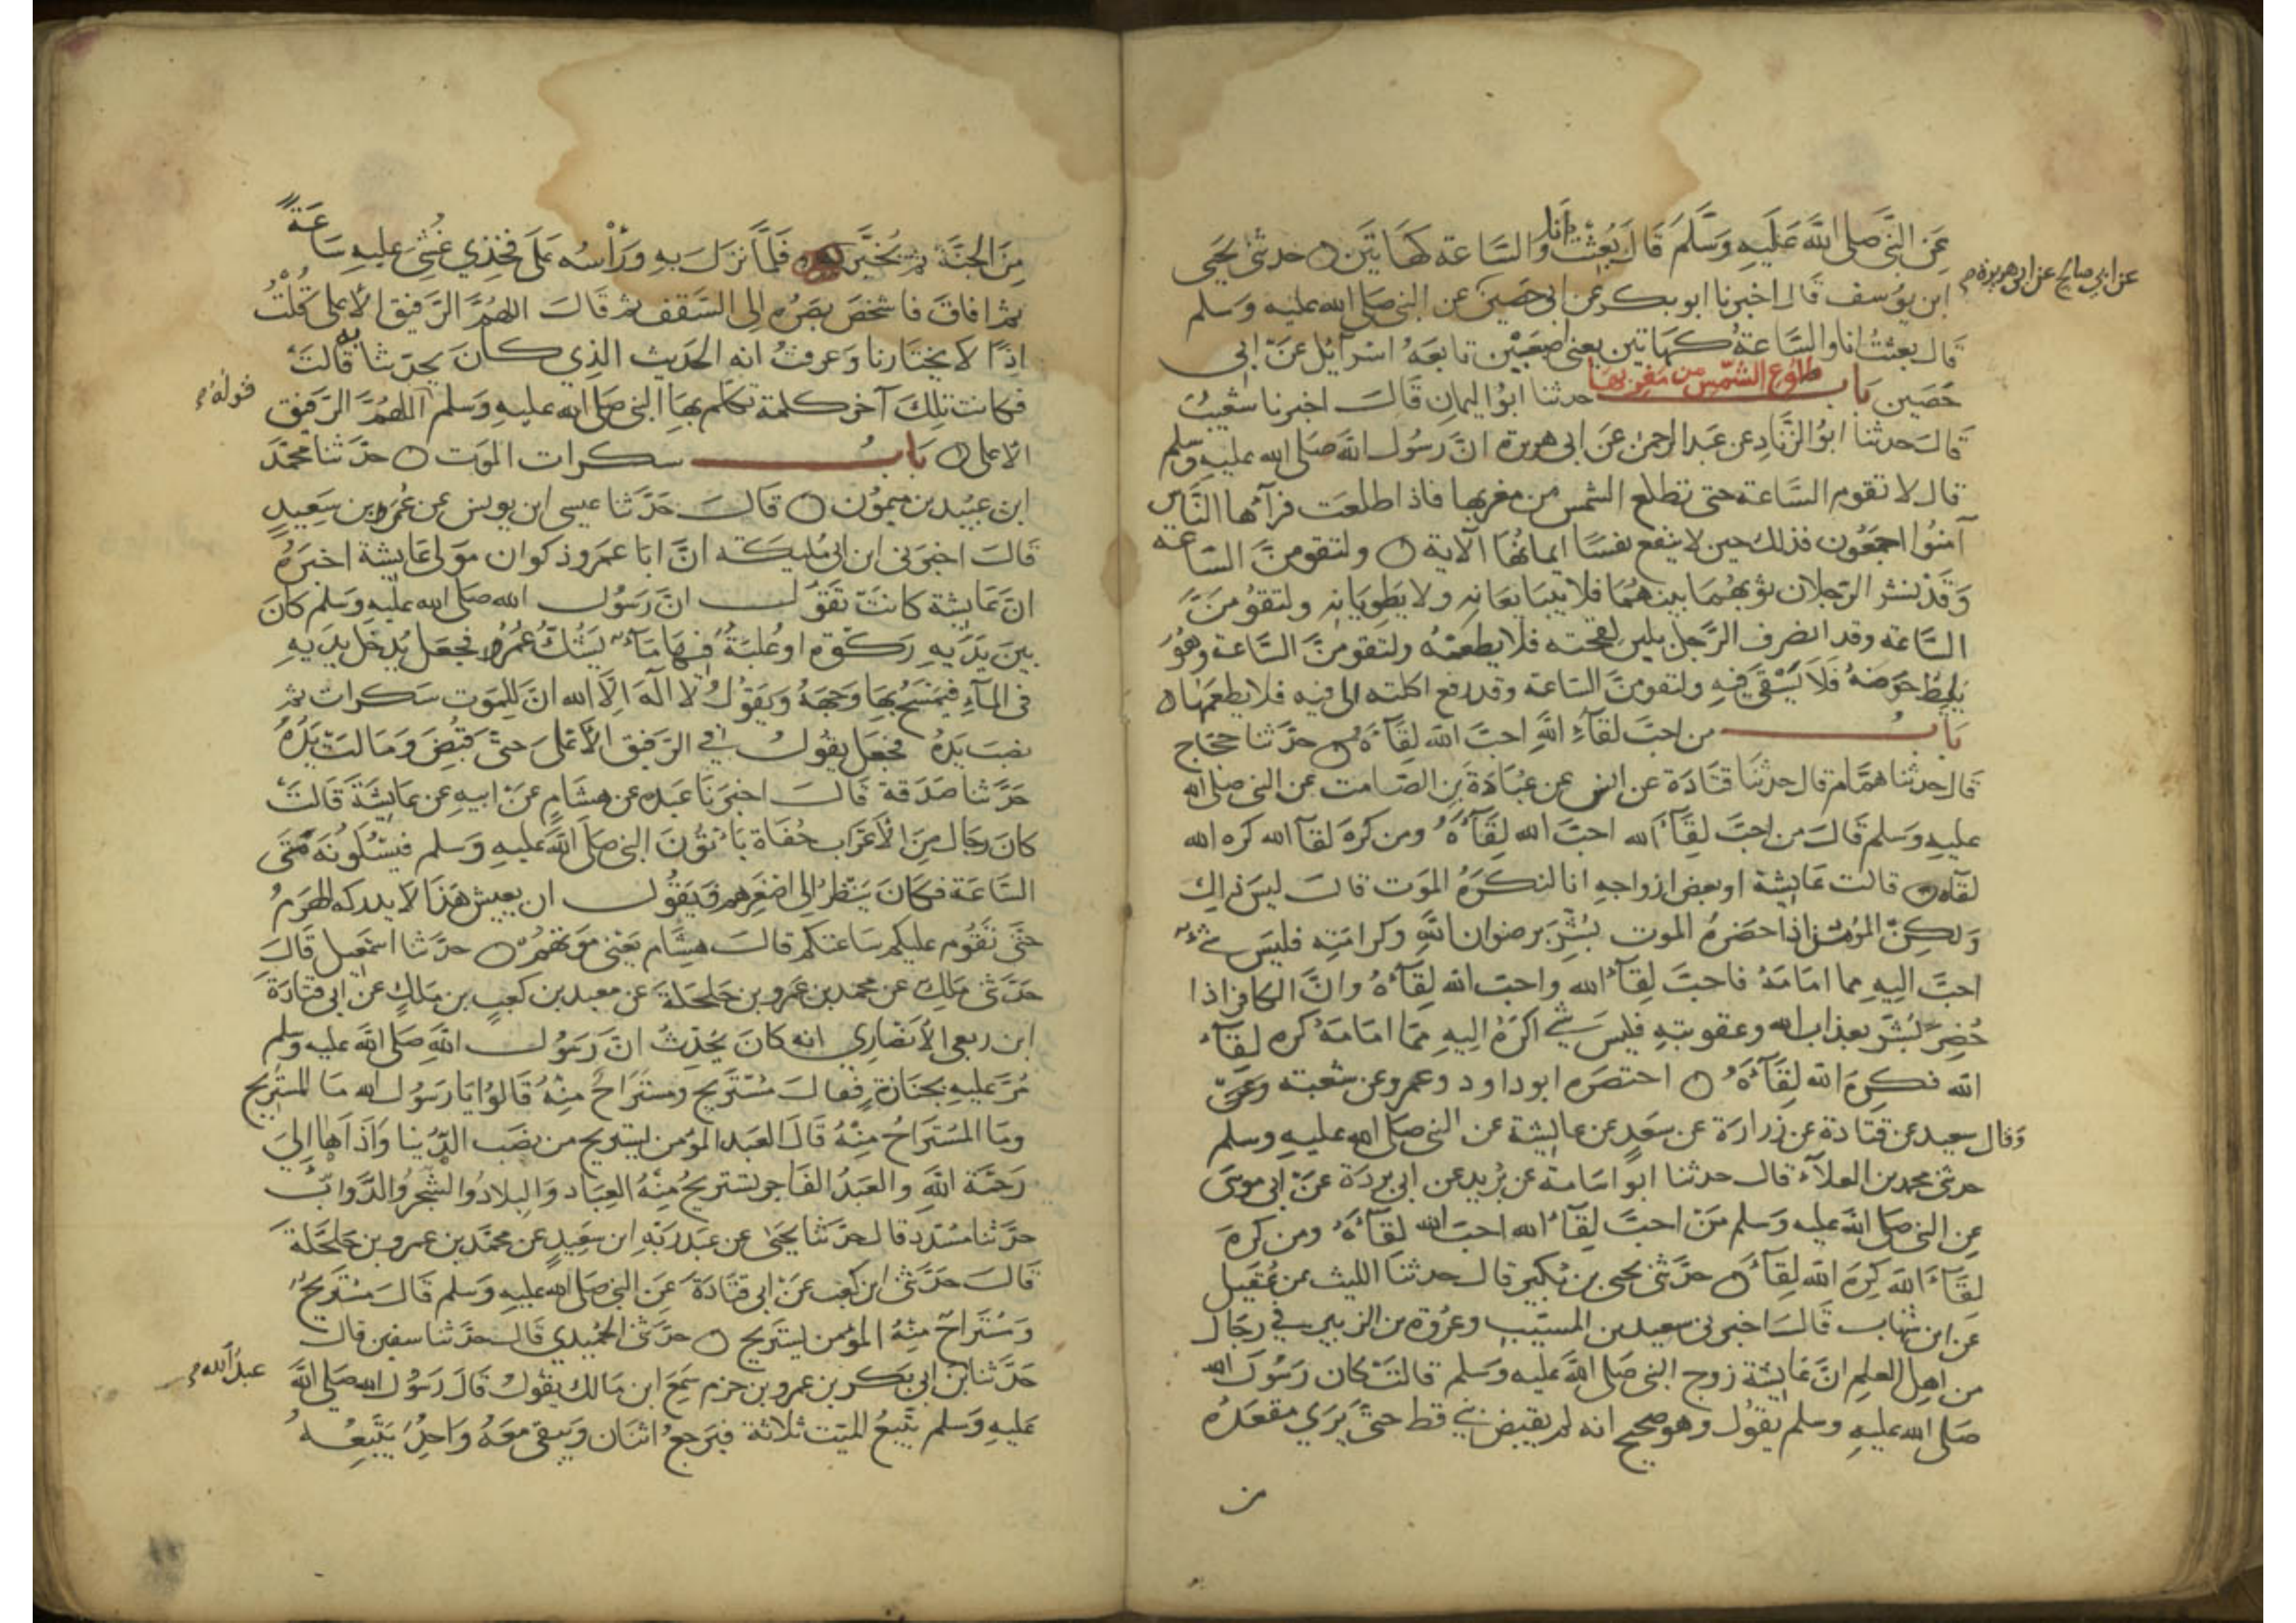 عَنِ النَّبيِّ صَلى اللَّهُ عَلَيهِ وَسَلَّمَ قَالَ بُعِثْتُ أنا وَالسَّاعة كهَاتَين ۝ حدثنى يَحيَى
ابن يوُسف قال اخبرنا ابو بكر عن ابى حَصينٍ عن النبى صَلى الله عليه وَسَلم
عن ابي صالح عن ابى هريرة
قال بعثتُ انا والسَّاعةُ كهَاتين يعنى اصْبَعَيْن تابعَهُ اسْرآئِل عَنْ ابى
حَصَين بَابُ طلوُع الشمّس من مَغربهَا حدثنا ابوُ اليمانِ قَالَ اخبرنا شعَيبٌ
قالَ حَدثنا ابوُ الزّنادِ عن عَبد الرحمن عَن ابى هريرة انَّ رَسُول اللهَ صَلى الله عليهِ وَسَلم
قال لا تقوم السَّاعة حتى تطلع الشمس من مغربها فاذا طلعَت فرآها النَّاسُ
آمنوُا اجمَعُون فذلك حين لا ينفع نفسًا ايمانُهَا الآية ۝ ولتقومنَّ السَّاعة
وَقَدْ نشر الرّجلان ثوبهُمَا بينهُمَا فلا يتبايعَانه ولا يَطوِيَانِه ولتقوُمَنَّ
السَّاعة وقد انصرف الرَّجل بلبن لقحته فلا يطعمُه ولتقومنَّ السَّاعة وهُوَ
يُلِيطُ حَوضَهُ فَلَا يَسْقى فيهِ ولتقومنَّ السَّاعة وقد رفع اكلته الى فيه فلا يطعمُهَا ۝
بَابُ من احبَّ لقآءَ اللهِ احبَّ الله لِقَآءَهُ ۝ حدَّثنا حَجّاج
قال حدثنا همَّام قال حدثنا قتَادَة عن انس عن عبُادَة بن الصَّامت عن النبى صلى الله
عليهِ وَسَلم قَالَ من احبَّ لِقَآءَ الله احبَّ الله لِقَآءَهُ ومن كرهَ لقآء الله كره الله
لقآءه ۝ قالت عَايشة او بعض ازواجهِ انا لنكرَهُ الموَت قالَ ليسَ ذاكِ
وَلكِنّ المؤمن اذا حَضرهُ الموت بُشِّرَ برضوان اللهِ وكرامَتِهِ فليسَ شىْءٌ
احبَّ اليهِ مما امَامَهُ فاحبَّ لِقَآءَ الله واحبّ الله لِقَآءَهُ وانَّ الكافر اذا
حُضِرَ بُشّرَ بعذاب الله وعقوبتهِ فليسَ شَىْءٌ اكرَهُ اليهِ ممَّا امَامَهُ كره لِقَآءَ
الله فكرهَ الله لِقَآءَهُ ۝ اختصَره ابو داود وعمرو عن شعبة وَعَنْ
وَقال سعيد عن قتَادة عن زرارة عن سَعدٍ عن عايشة عن النبى صلى الله عليهِ وسلم
حدثنى محمد بن العلآء قال حدثنا ابو اسَامة عن بُريدٍ عن ابى بردَة عَن ابى موسَى
عن النبى صلى الله عليه وَسلم مَنْ احبَّ لِقَآءَ الله احبّ الله لِقَآءَهُ ومن كرهَ
لقَآءَ الله كرهَ الله لِقَآءَهُ ۝ حدَّثنى يحيى بن بُكيرٍ قال حدثنا الليث عن عُقَيل
عَن ابن شهاب قَالَ اخبرنى سعيد بن المسيّب وعُروة بن الزبير فى رجَال
من اهل العلمِ انَّ عَايشَة زوج النبى صَلى الله عليه وَسَلم قالتْ كان رَسُول الله
صَلى الله عليهِ وسلم يقوُل وهو صحيح انه لم يقبض نبى قط حتىَّ يَرى مقعَدَهُ
من
مِنَ الجنَّة ثم يُخيَّرُ فَلمَّا نزلَ بهِ وَرَأسُه عَلَى فخذي غُشى عليهِ سَاعَةً
ثم افاقَ فاشخصَ بصَرَه الى السَّقف ثم قالَ اللهُمَّ الرّفيق الأعلى قُلْتُ
اذًا لا يختارنا وَعرفتُ انه الحَديث الذِي كانَ يحدّثنا به قالَتْ
فكانت تلكَ آخر كلمة تكلم بهَا النبى صَلى الله عليهِ وَسَلم قولُهُ اللهُمَّ الرّفيق
الاعلى ۝ بَابُ سكرات الموَت ۝ حدَّثنا محمَّد
ابن عبَيد بن ميموُن ۝ قالَ حَدّثنا عيسى ابن يونس عن عُمرَ بن سَعِيدٍ
قالَ اخبرَنى ابن ابى مُليكَة انَّ ابَا عمرو ذكوان موَلى عَايشة اخبرَهُ
انّ عَايشة كانَتْ تقَوُل انَّ رَسُولَ الله صَلى الله عَليهِ وَسَلم كانَ
بينَ يدَيهِ رَكوَة او عُلبَةٌ فيهَا مَآءٌ يشُكُّ عُمَرُ فجعَل يُدخل يدَيهِ
فى المآءِ فيمَسَحُ بهَا وَجهَهُ وَيَقوُلُ لا الَه الَّا الله انَّ للموَت سَكرات ثم
نصَبَ يدَهُ فجَعَل يقولُ فى الرّفيق الأعلَى حَتىَّ قُبِضَ وَمَالتْ يَدُهُ
حَدَّثنا صَدَقة قالَ اخبرَنا عَبده عن هشَامٍ عَن ابيهِ عن عَايِشَةَ قَالَتْ
كانَ رجَال مِنَ الأعرَاب حُفَاة يَأتوُنَ النبى صَلى اللهُ عَليهِ وَسَلم فيسَْلوُنَهُ مَتَى
السَّاعَة فكانَ يَنظرُ الى اصْغرهِم فَيَقوُل ان يعِيش هَذَا لا يدركه الهَرمُ
حتَّى تقَوُم عليكم سَاعتكم قالَ هِشام يَعنى موَتهُمْ ۝ حدَّثنا اسمعيل قَالَ
حَدَّثنى مَالك عن محمد بن عَمرو بن حَلحَلة عَن معبد بن كعبٍ بن مَالكٍ عن ابى قتادَةَ
ابن ربعي الأنصَاري انه كانَ يُحَدِّثُ انَّ رَسَوُل اللهِ صَلى الله عليه وَسَلم
مُرَّ عليهِ بجنازةٍ فقالَ مُسْتَرِيح ومستَرَاحٌ مِنْهُ قالوُا يَا رَسوُل الله مَا المستَرِيح
وما المسْتَرَاحُ مِنْهُ قَالَ العبَد المؤمن يستريح من نصَب الدُّنيا وَاَذَاهَا الَى
رَحمَة اللهِ والعَبدُ الفَاجر يستريحُ مِنْهُ العِبَاد وَالبلادُ والشجرُ والدَّوابّ
حدَّثنا مسَدّد قال حدَّثنا يَحيَى عن عَبدِ رَبّهِ ابن سَعِيدٍ عن محمَّد بن عمرو بن حَلحَلة
قَالَ حدَّثنى ابن كعَب عَنْ ابى قتادَةَ عَن النبى صَلى الله عليهِ وَسَلم قَالَ مسْتَرِيحٌ
وَمسْتَراحٌ مِنْهُ المؤمن يستَريح ۝ حدَّثنى الحُميدي قَالَ حدَّثنا سفين قال
حَدَّثنا عبدُ الله بن ابى بكر بن عمرو بن حزم سَمعَ ابن مَالك يقولُ قالَ رَسُول الله صَلى الله
عَليهِ وَسَلم يَتْبَعُ الميّت ثلاثة فيَرجعُ اثنَان وَيبقى مَعَهُ وَاحِدٌ يَتْبَعُهُ